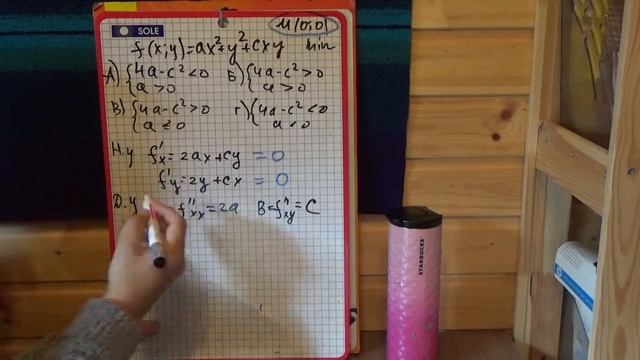 SOLE
M(0,0)
f(x;y)=ax²+y²+cxy min
А) {4a-c²<0 Б) {4a-c²>0
{a>0 {a>0
В) {4a-c²>0 г) {4a-c²<0
{a≤0 {a<0
Н.у f'x=2ax+cy =0
f'y=2y+cx =0
Д.у f''xx=2a B=f''xy=C
STARBUCKS